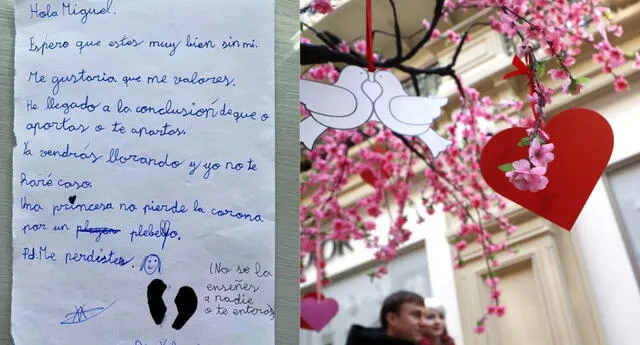 Hola Miguel.
Espero que estes muy bien sin mi.
Me gustaria que me valores.
He llegado a la conclusión deque o
aportas o te apartas.
Ya vendrás llorando y yo no te
haré caso.
Una princesa no pierde la corona
por un plebello.
Pd: Me perdistes.
(No se la
enseñes
a nadie
o te enteras)